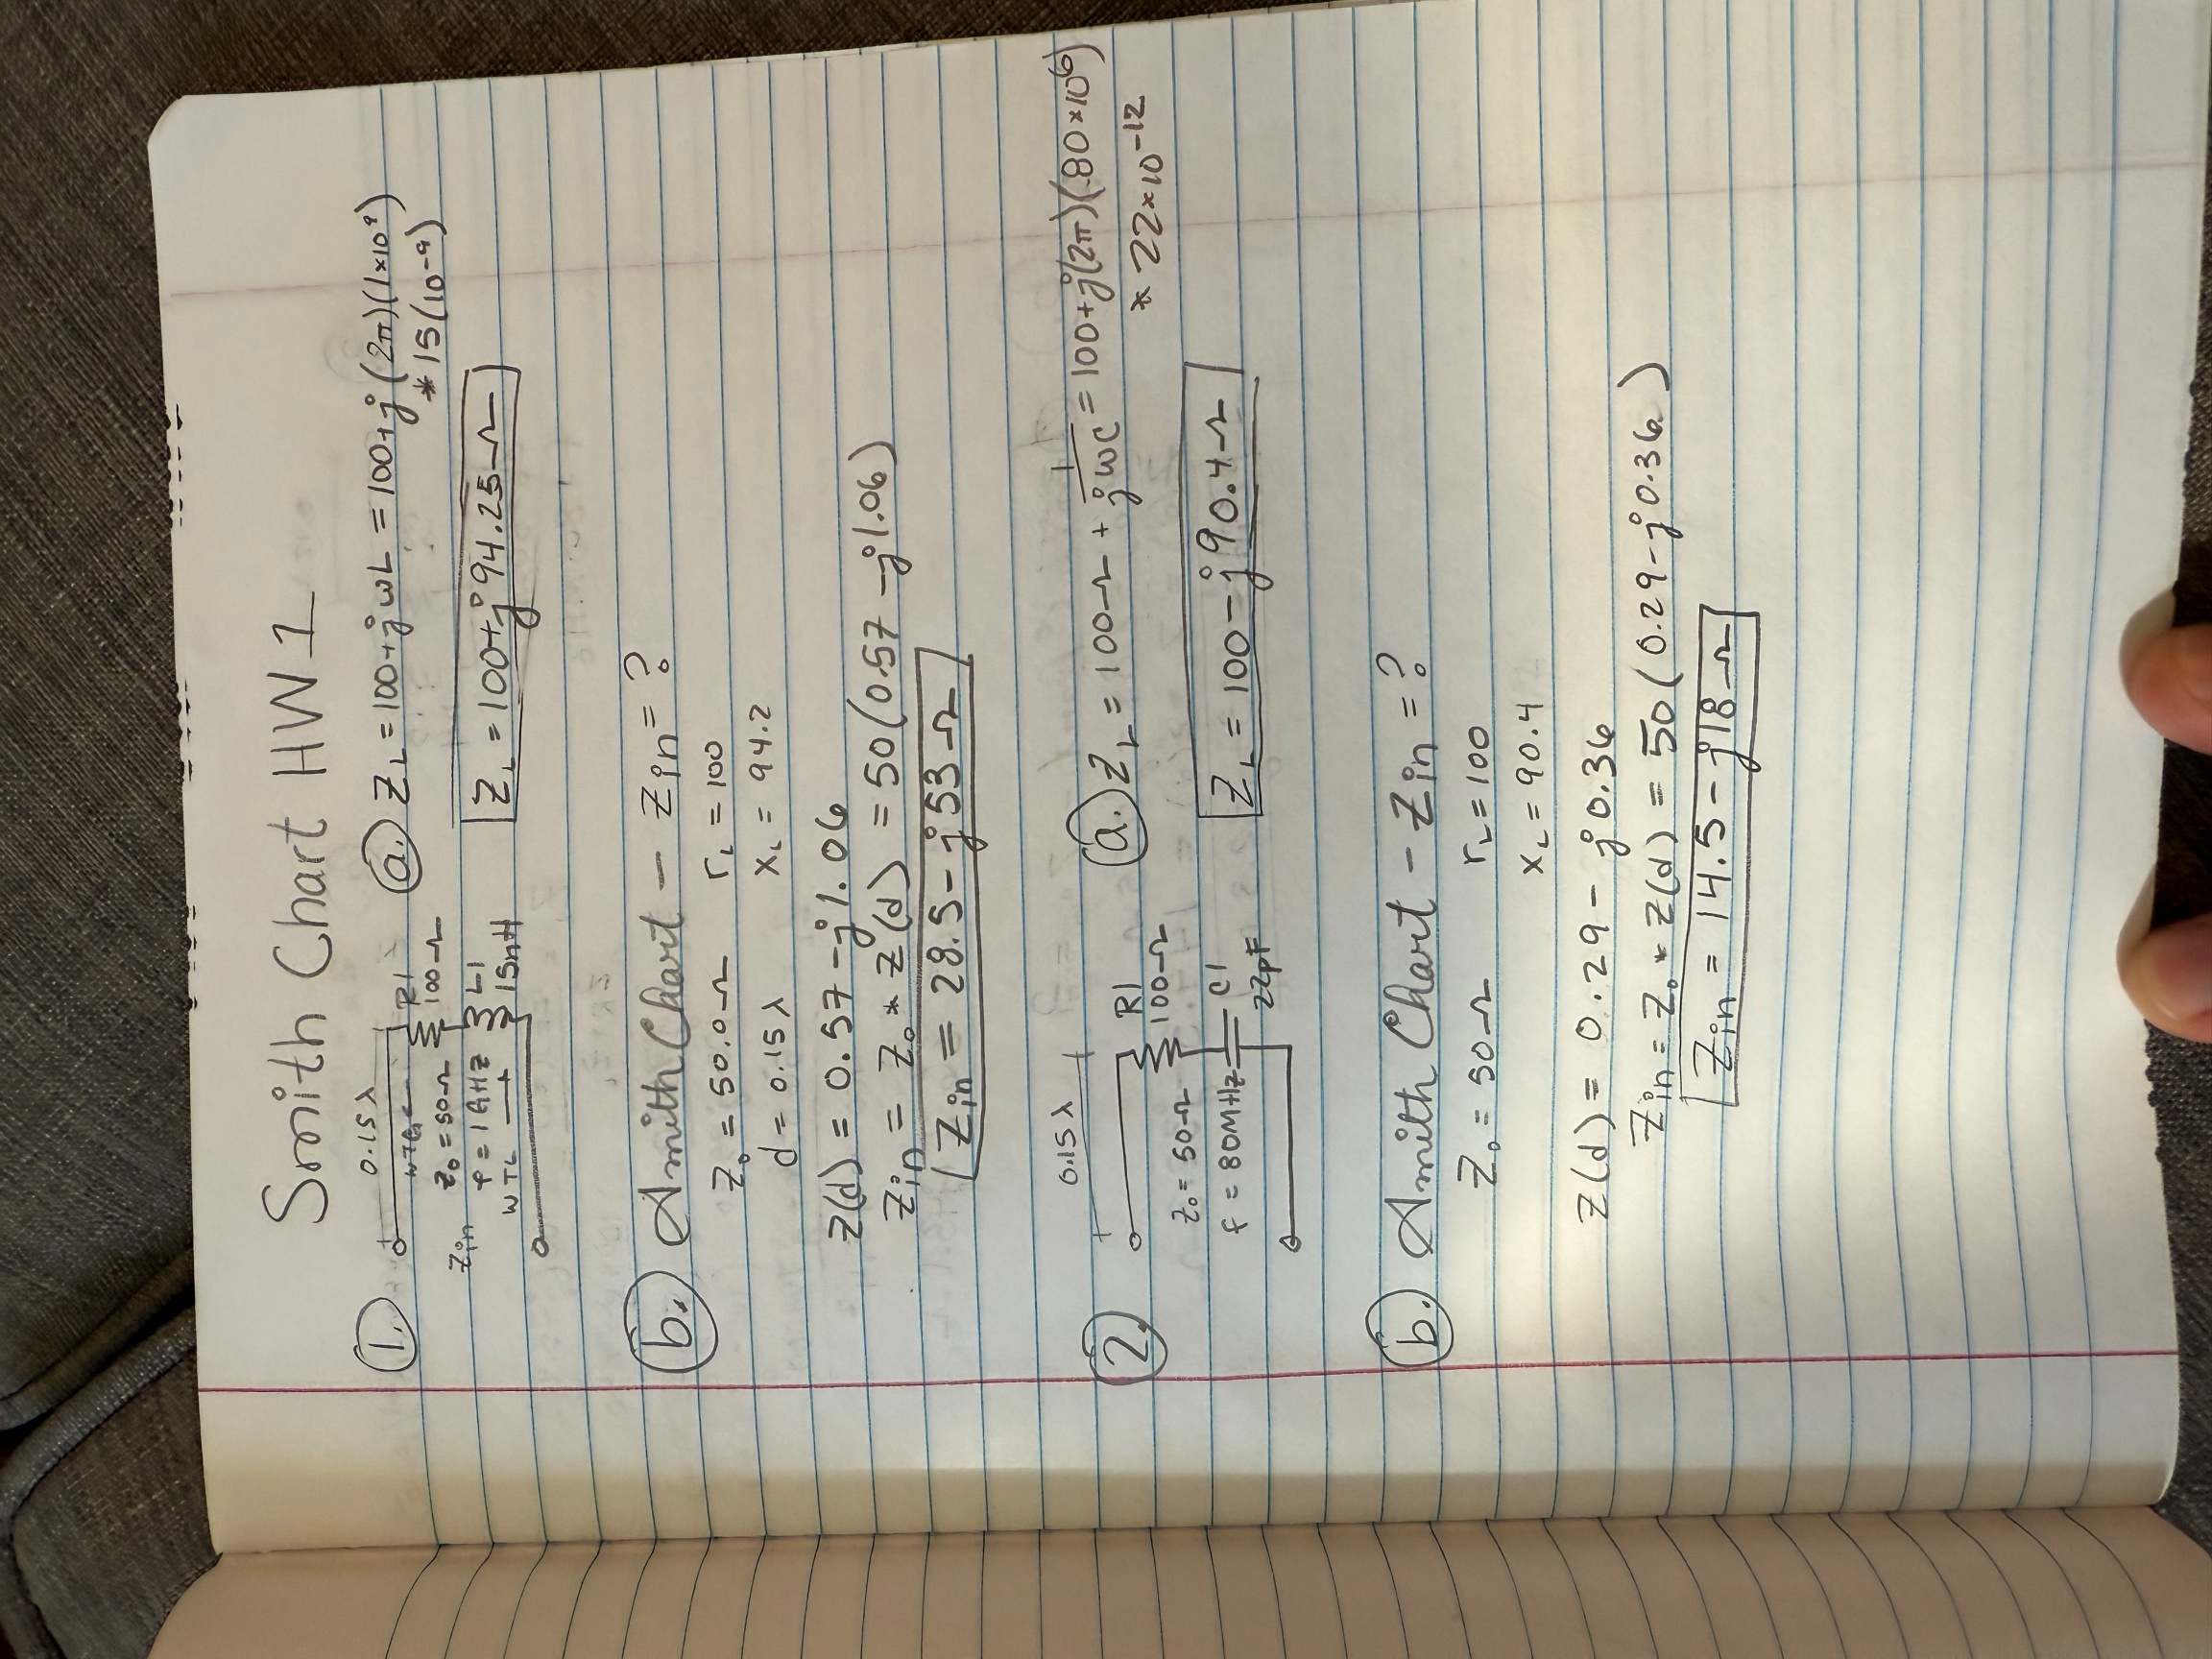 Smith Chart HW1
1. 0.15λ
WTG
R1
100Ω
Z₀ = 50Ω
Zin
f = 1GHz
L1
15nH
WTL
a. Z_L = 100+jωL = 100+j(2π)(1×10⁹)
* 15(10⁻⁹)
Z_L = 100+j94.25Ω
b. Smith Chart - Zin = ?
Z₀ = 50.0Ω r_L = 100
d = 0.15λ x_L = 94.2
Z(d) = 0.57 - j1.06
Zin = Z₀ * Z(d) = 50(0.57 - j1.06)
Zin = 28.5 - j53Ω
2. 0.15λ
R1
100Ω
Z₀ = 50Ω
f = 80MHz
C1
22pF
a. Z_L = 100Ω + 1/jωC = 100+j(2π)(80×10⁶)
* 22×10⁻¹²
Z_L = 100 - j90.4Ω
b. Smith Chart - Zin = ?
Z₀ = 50Ω r_L = 100
x_L = 90.4
Z(d) = 0.29 - j0.36
Zin = Z₀ * Z(d) = 50(0.29 - j0.36)
Zin = 14.5 - j18Ω